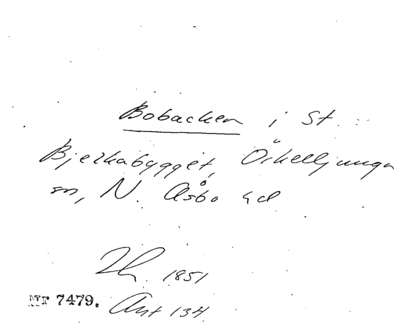 Bobacken i St.
Bjerkabygget, Örkelljunga
sn, N. Åsbo hd
1851
NT 7479. Akt 134